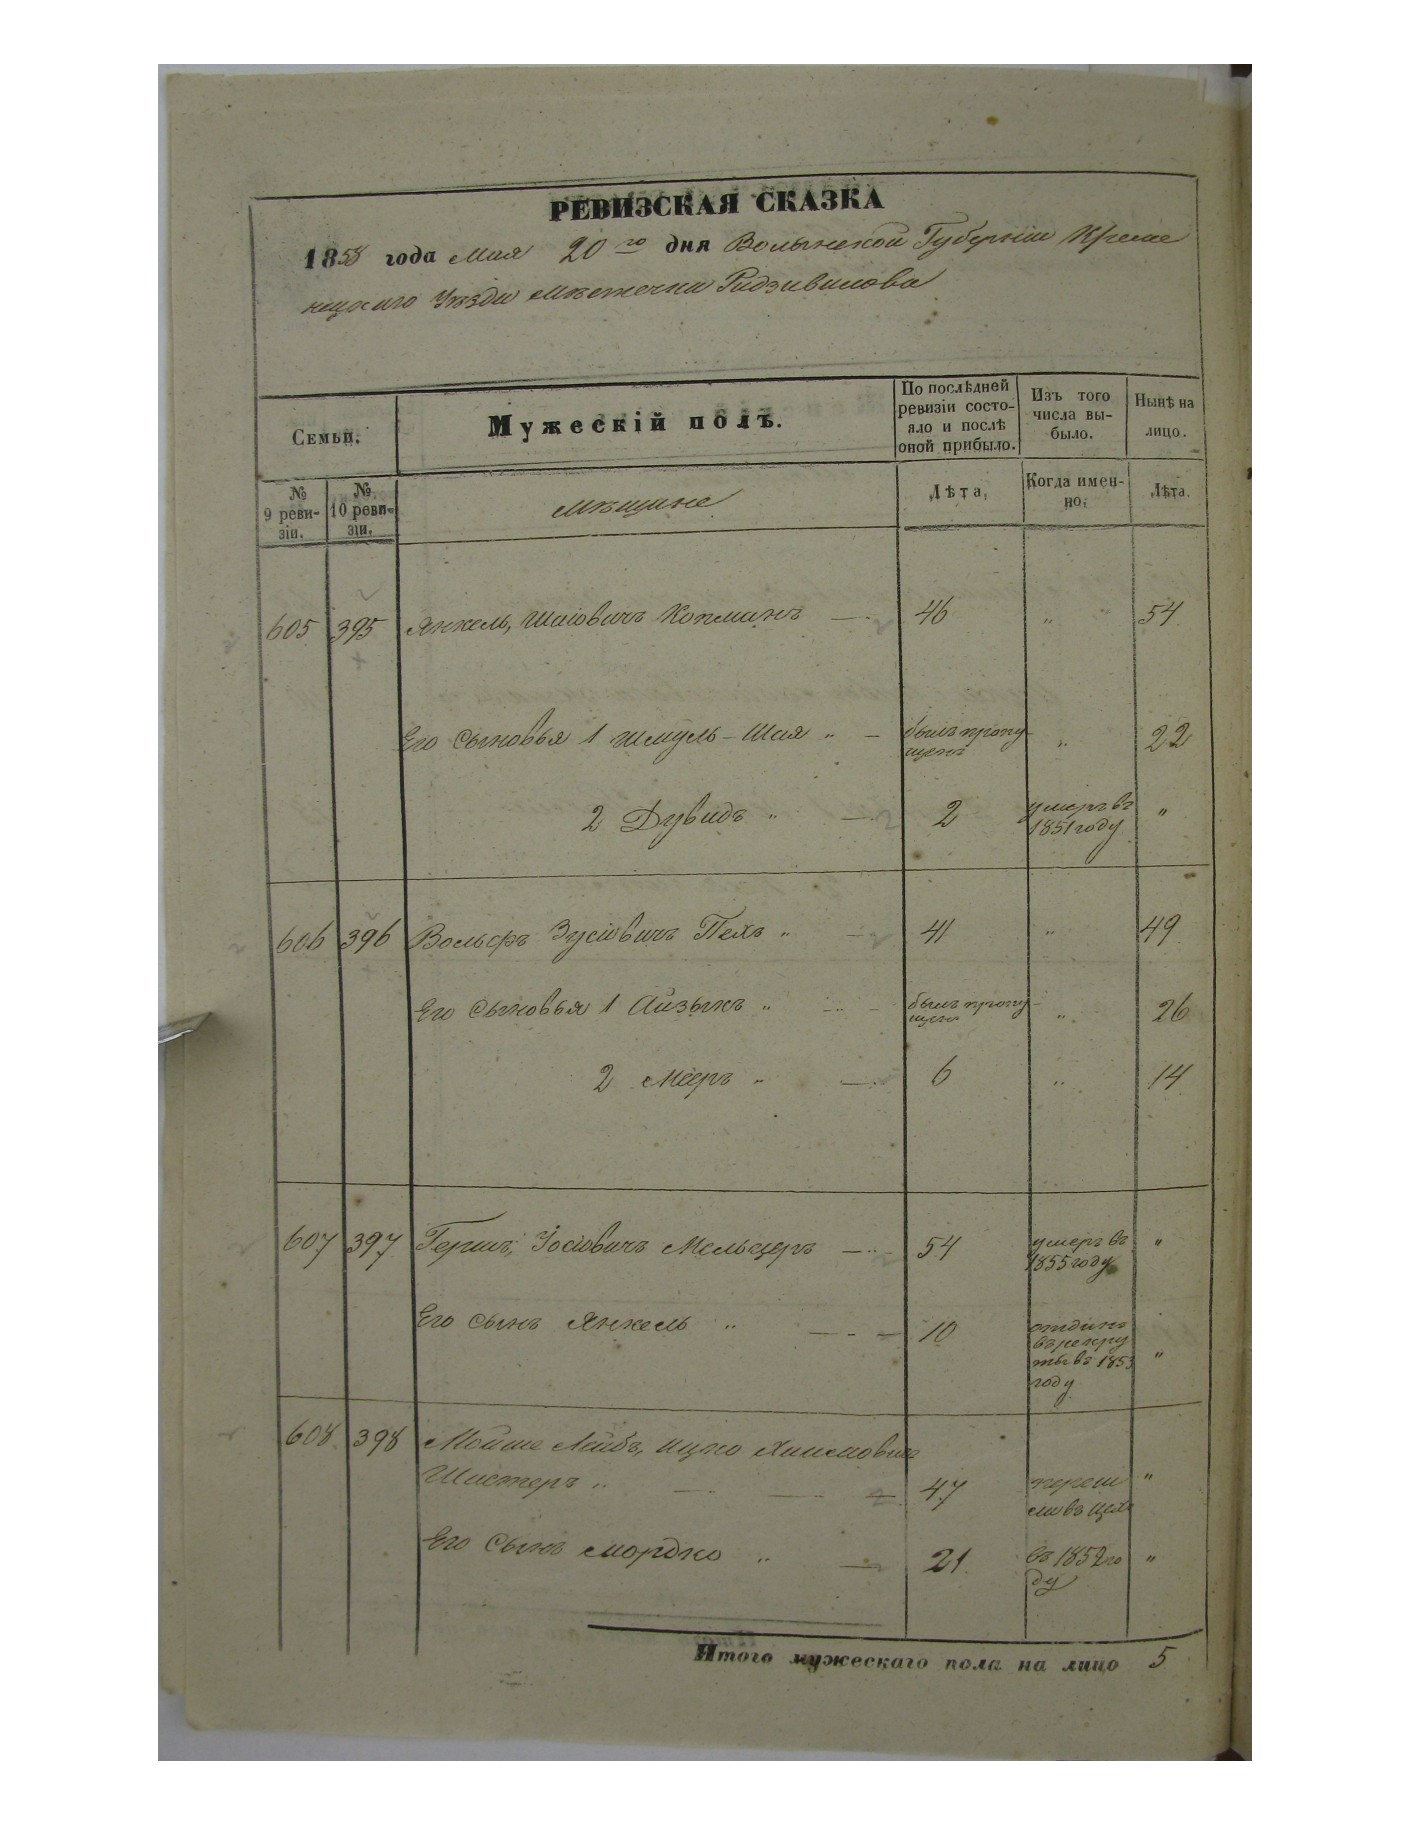 РЕВИЗСКАЯ СКАЗКА
1858 года Мая 20 го дня Волынской Губерніи Креме
нецкаго Уѣзда Мѣстечка Радзивилова
Семьи.
Мужескій полъ.
По послѣдней ревизіи состо-
яло и послѣ
оной прибыло.
Изъ того
числа вы-
было.
Нынѣ на
лицо.
№
9 реви-
зіи.
№
10 реви-
зіи.
Мѣщане
Лѣта.
Когда имен-
но.
Лѣта.
605 395 Янкель, Шаіовичъ Копманъ — 46 „ 54
Его Сыновья 1 Шмуль-Шая „ — былъ пропу-
щенъ „ 22
2 Дувидъ „ — 2 умеръ въ
1851 году „
606 396 Вольфъ Зусіовичъ Пехъ „ — 41 „ 49
Его Сыновья 1 Айзыкъ „ — былъ пропу-
щенъ „ 26
2 Мееръ „ — 6 „ 14
607 397 Гершъ, Іосіовичъ Мельцеръ — 54 умеръ въ
1855 году „
Его Сынъ Янкель „ — 10 отданъ
въ рекру
ты въ 1853
году „
608 398 Мойше Лейбъ, Ицко Хаимовичъ
Шистеръ „ — — — 47 переш
въ цехъ „
Его Сынъ Мордко „ — 21 въ 1852 го
ду „
Итого мужескаго пола на лицо 5